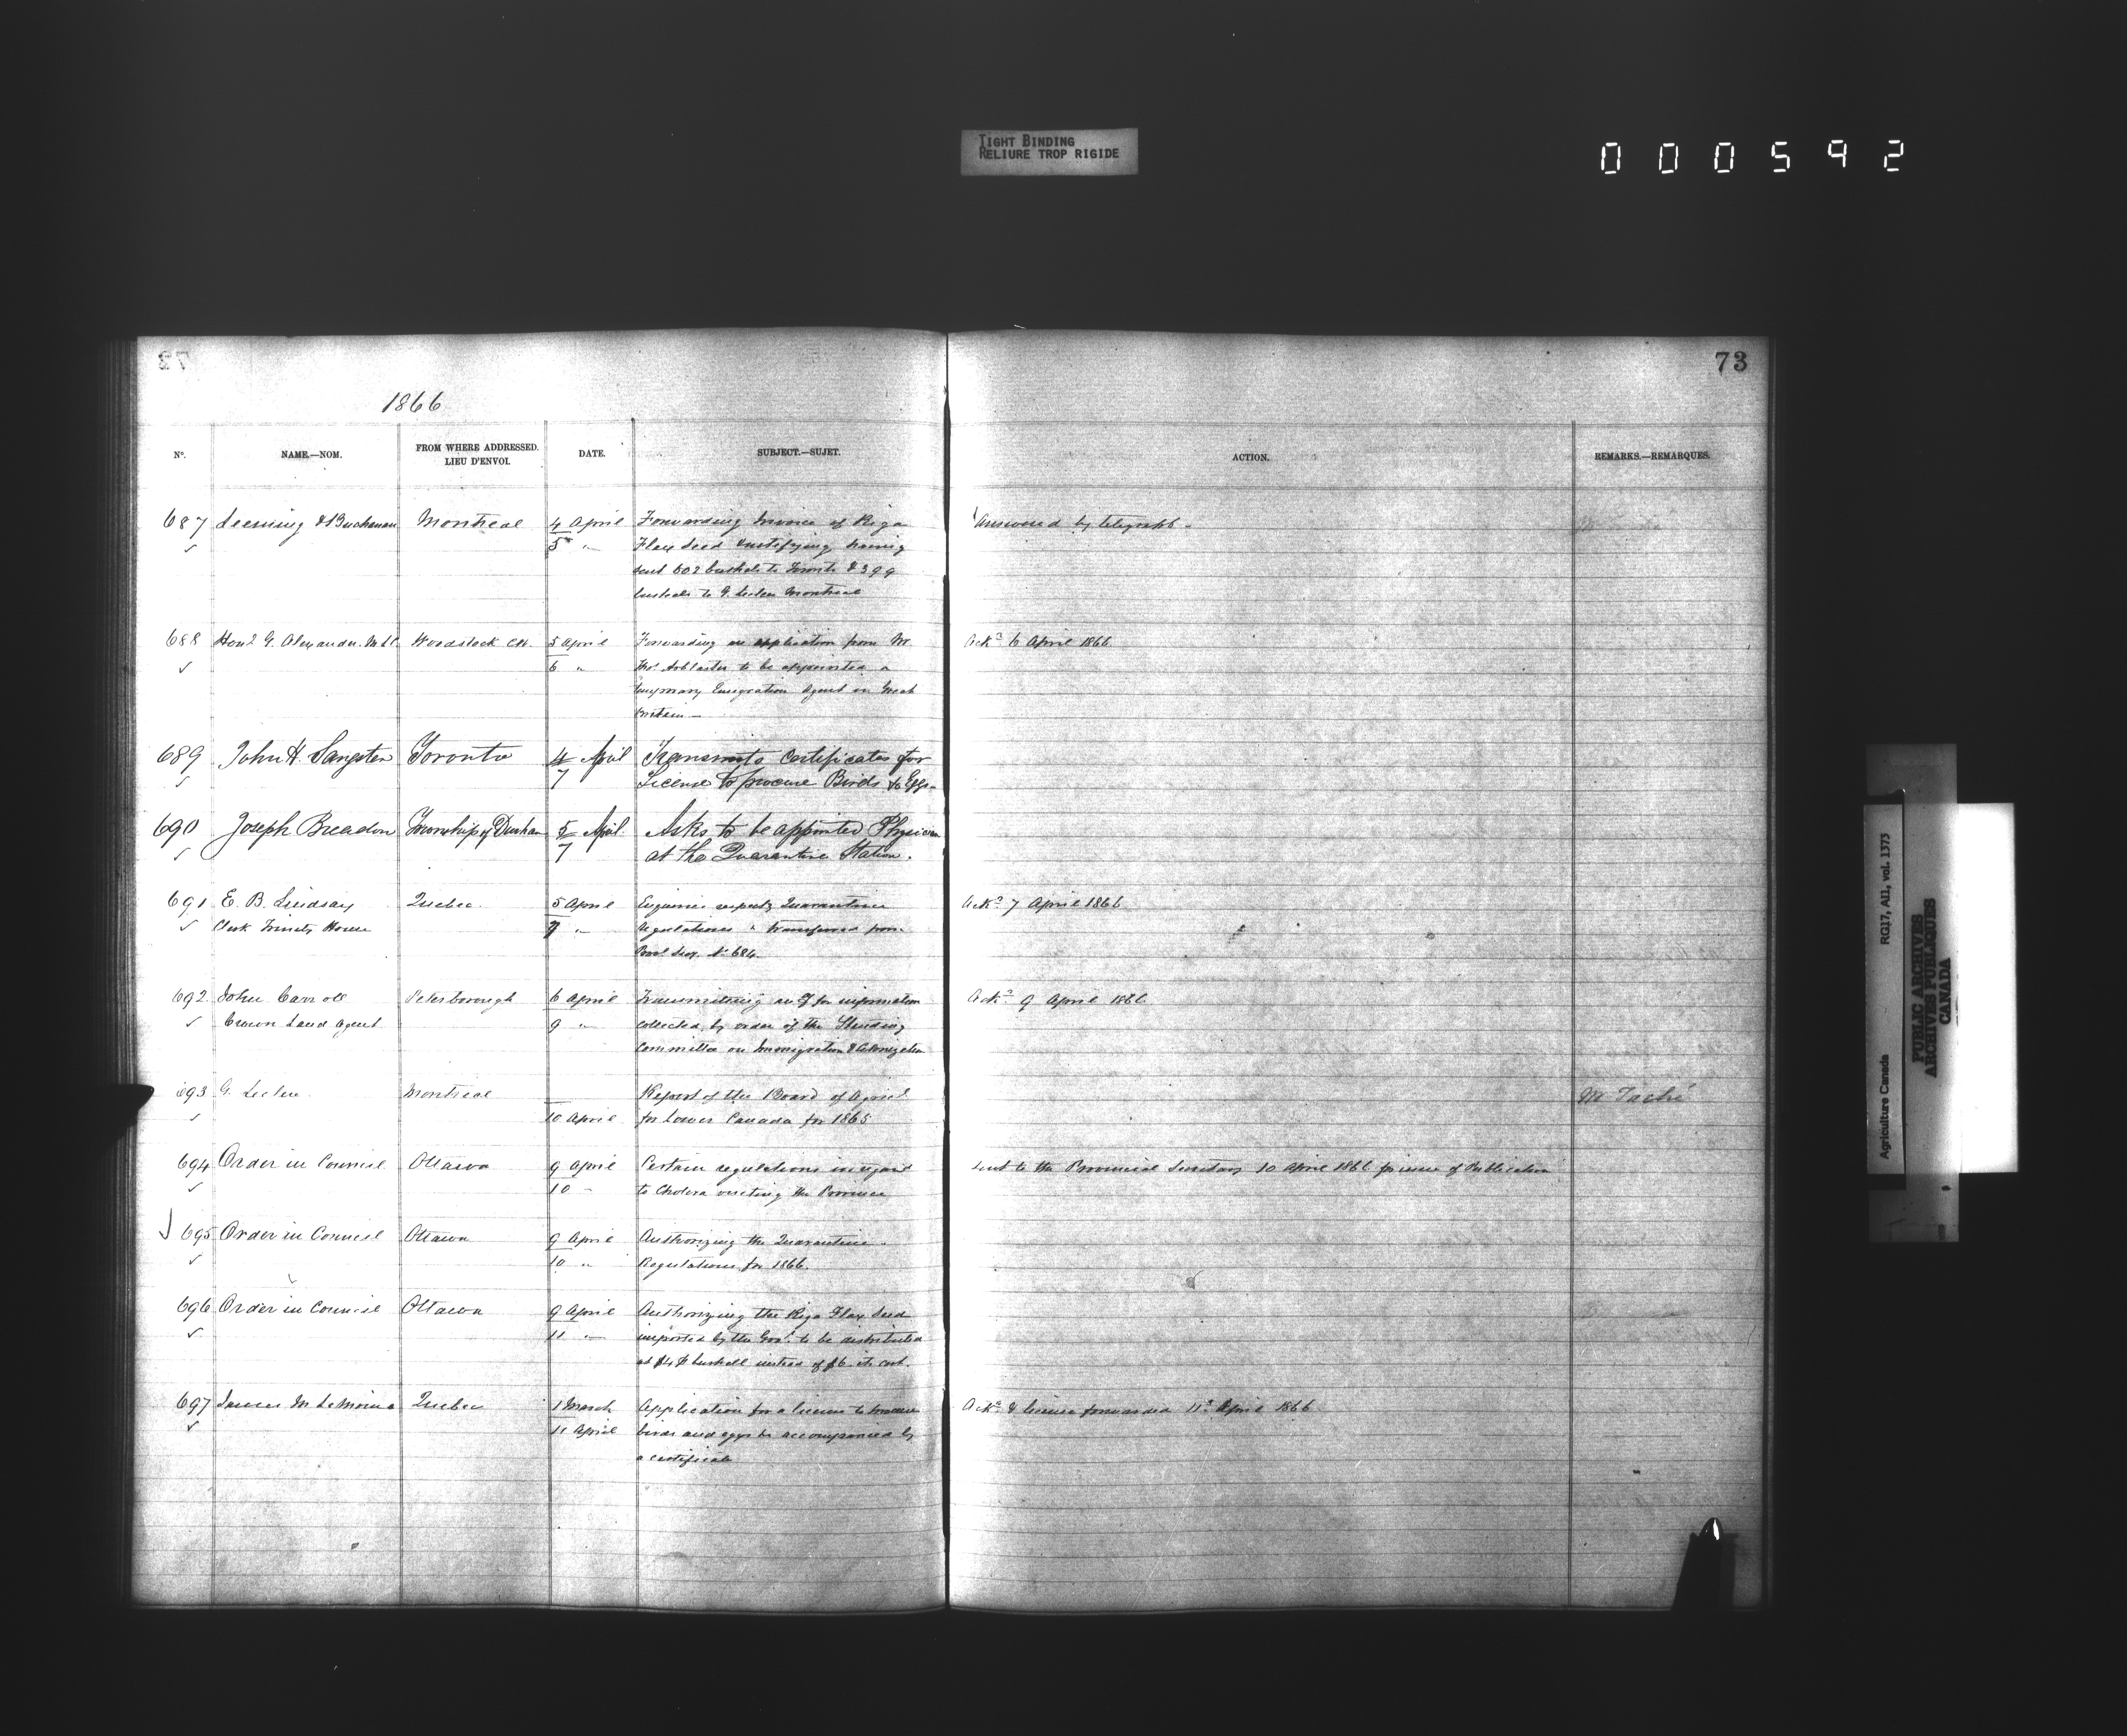 TIGHT BINDING
RELIURE TROP RIGIDE
000592
73
1866
No. NAME.—NOM. FROM WHERE ADDRESSED. LIEU D'ENVOI. DATE. SUBJECT.—SUJET. ACTION. REMARKS.—REMARQUES.
687 Leeming & Buchanan Montreal 4 April Forwarding Invoice of Riga Answered by telegraph
5 " Flax Seed having
sent 602 bushels to Toronto & 399
bushels to G. Leclere Montreal
688 Honl. G. Alexander. M.L.C. Woodstock C.W. 5 April Forwarding an application from Mr. Ackd. 6 April 1866
6 " to be appointed a
temporary Emigration Agent in Great
Britain —
689 John H. Sangster Toronto 4 April Transmits Certificates for
7 License to procure Birds & Eggs
690 Joseph Breadon Township of Dunham 5 April Asks to be appointed Physician
7 at the Quarantine Station.
691 E. B. Lindsay Quebec. 5 April Enquiries respectg Quarantine Ackd. 7 April 1866
Clerk Trinity House 7 " Regulations transferred from
Provl Secy. No 684.
692 John Carroll Peterborough 6 April Transmitting for information Ackd. 9 April 1866
Crown Land Agent 9 " collected by order of the Standing
Committee on Immigration & Colonization
693 G. Leclere Montreal Report of the Board of Agricl. M Taché
10 April for Lower Canada for 1865
694 Order in Council Ottawa 9 April Certain regulations in regard Sent to the Provincial Secretary 10 April 1866 for Publication
10 " to Cholera visiting the Province
695 Order in Council Ottawa 9 April Authorizing the Quarantine
10 " Regulations for 1866.
696 Order in Council Ottawa 9 April Authorizing the Riga Flax Seed
11 " imported by the Govt. to be distributed
at $4 ⅌ bushell instead of $6 its cost.
697 James M LeMoine Quebec 1 March Application for a license to procure Ackd. & license forwarded 11 April 1866
11 April birds and eggs accompanied by
a certificate
Agriculture Canada RG17, AI1, vol. 1373
PUBLIC ARCHIVES
ARCHIVES PUBLIQUES
CANADA